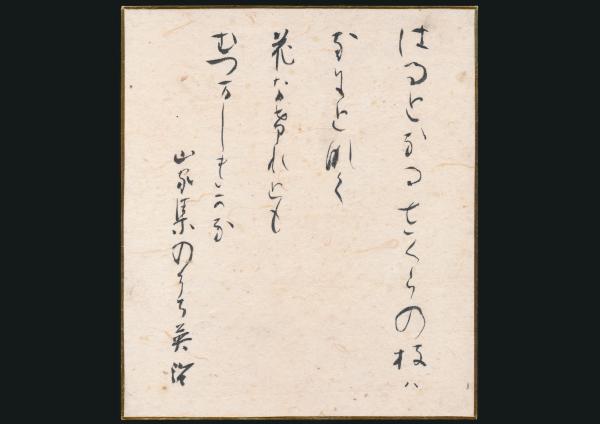 はるとなるさくらの枝ハ
なにと那く
花なけれとも
むつましきかな
山家集のうち 英治